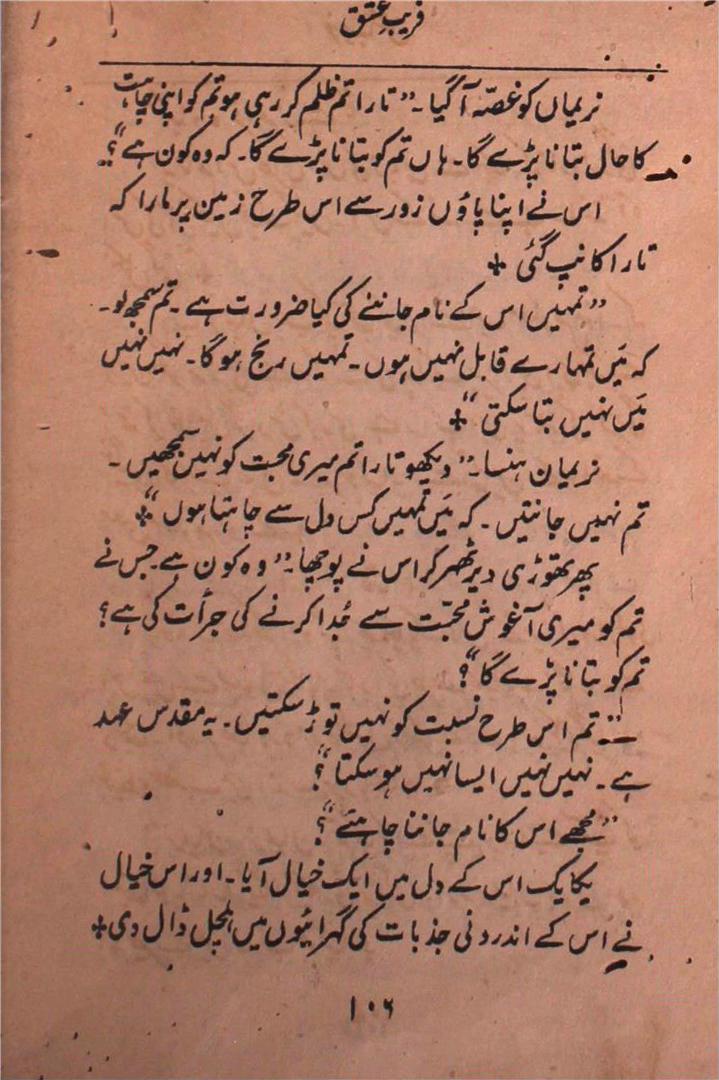 فریبِ عشق
نریماں کو غصّہ آگیا۔ ”تارا تم ظلم کر رہی ہو تم کو اپنی چاہت
کا حال بتانا پڑے گا۔ ہاں تم کو بتانا پڑے گا۔ کہ وہ کون ہے“؟
اس نے اپنا پاؤں زور سے اس طرح زمین پر مارا کہ
تارا کانپ گئی +
”تمہیں اس کے نام جاننے کی کیا ضرورت ہے۔ تم سمجھ لو۔
کہ مَیں تمہارے قابل نہیں ہوں۔ تمہیں رنج ہوگا۔ نہیں نہیں
مَیں نہیں بتا سکتی“ +
نریمان ہنسا۔ ”دیکھو تارا تم میری محبت کو نہیں سمجھیں۔
تم نہیں جانتیں۔ کہ مَیں تمہیں کس دل سے چاہتا ہوں“ +
پھر تھوڑی دیر ٹھہر کر اس نے پوچھا۔ ”وہ کون ہے جس نے
تم کو میری آغوش محبّت سے جُدا کرنے کی جرأت کی ہے؟
تم کو بتانا پڑے گا“؟
”تم اس طرح نسبت کو نہیں توڑ سکتیں۔ یہ مقدس عہد
ہے۔ نہیں نہیں ایسا نہیں ہو سکتا“؟
”مجھے اس کا نام جاننا چاہئے“؟
یکایک اس کے دل میں ایک خیال آیا۔ اور اس خیال
نے اُس کے اندرونی جذبات کی گہرائیوں میں ہلچل ڈال دی +
۱۰۶